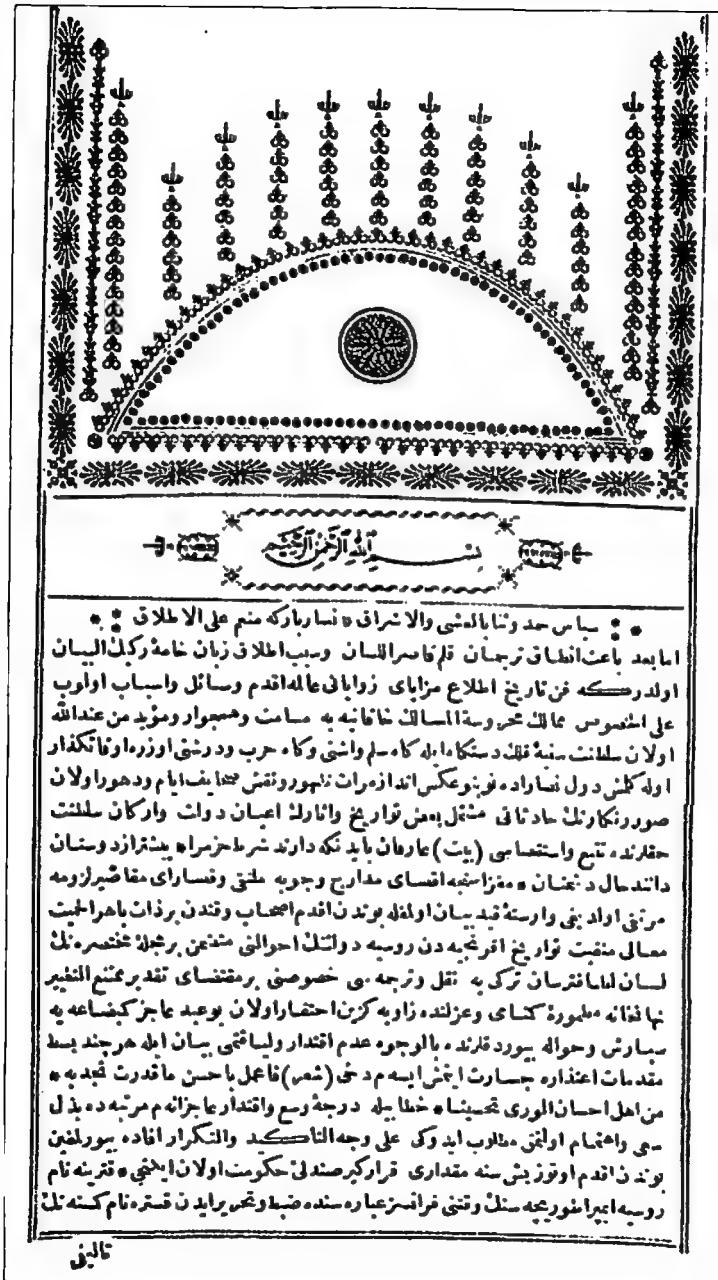 بسم الله الرحمن الرحيم
سپاس حمد وثنا بالعشى والاشراق * نسار باركه منعم على الاطلاق
اما بعد باعث انطاق ترجمان قلم قاصر اللسان وسبب اطلاق زبان خامهٔ ركيك البيان
اولدركه فن تاريخ اطلاع مزاياى زواياى عالمه اقدم وسائل واسباب اولوب
على الخصوص ممالك محروسة المسالك خاقانيه يه مسامت وهمجوار ومؤيد من عندالله
اولان سلطنت سنيهٔ فلك دستكاه ايله كاه سلم واشتى وكاه حرب ودرشتى اوزره اوقاتكذار
اوله كلمش دول نصاراده نوبنو عكس اندازهٔ مرات ظهور ونقش صحايف ايام ودهور اولان
صور رنكارنك حادثاتى مشتمل بعض تواريخ واثارك اعيان دولت واركان سلطنت
حقلرنده تتبع واستقصاسى (بيت) عارفان بايد نكه دارند شرط حزمرا * بيشتر از دوستان
دانند حال دشمنان * مغزاسنجه اقصاى مدارج وجوبه ملتقى وقصاراى مقاصير لزومه
مرتقى اولديغى وارستهٔ قيد بيان اولمغله بوندن اقدم اصحاب وقتدن بر ذات باهر الحميت
معالى منقبت تواريخ افرنجيه دن روسيه دولتنك احوالنى متضمن بر مجلهٔ مختصره نك
لسان لطافترسان تركى يه نقل وترجمه سى خصوصنى بر مقتضاى تقدير ممتنع التغيير
نهانخانه مطمورهٔ كنساى وعزلنده زاويه كزين احتضار اولان بو عبد عاجز كم بضاعه يه
سپارش وحواله بيوردقلرنده بالوجوه عدم اقتدار ولياقتمى بيان ايله هر چند بسط
مقدمات اعتذاره جسارت ايتمش ايسه م دخى (شعر) فاعمل باحسن ما قدرت تجد به *
من اهل احسان الورى تحسينا * خطابيله درجهٔ وسع واقتدار عاجزانه م مرتبه ده بذل
سعى واهتمام اولنمق مطلوب ايدوكى على وجه التأكيد والتكرار افاده بيورلمغين
بوندن اقدم اوتوز بش سنه مقدارى قراركير صندلى حكومت اولان ايكنجى * قترينه نام
روسيه ايمپراطوريچه سنك وقتنى فرانسز عباره سنده ضبط وتحرير ايدن قستره نام كسنه نك
تأليفى